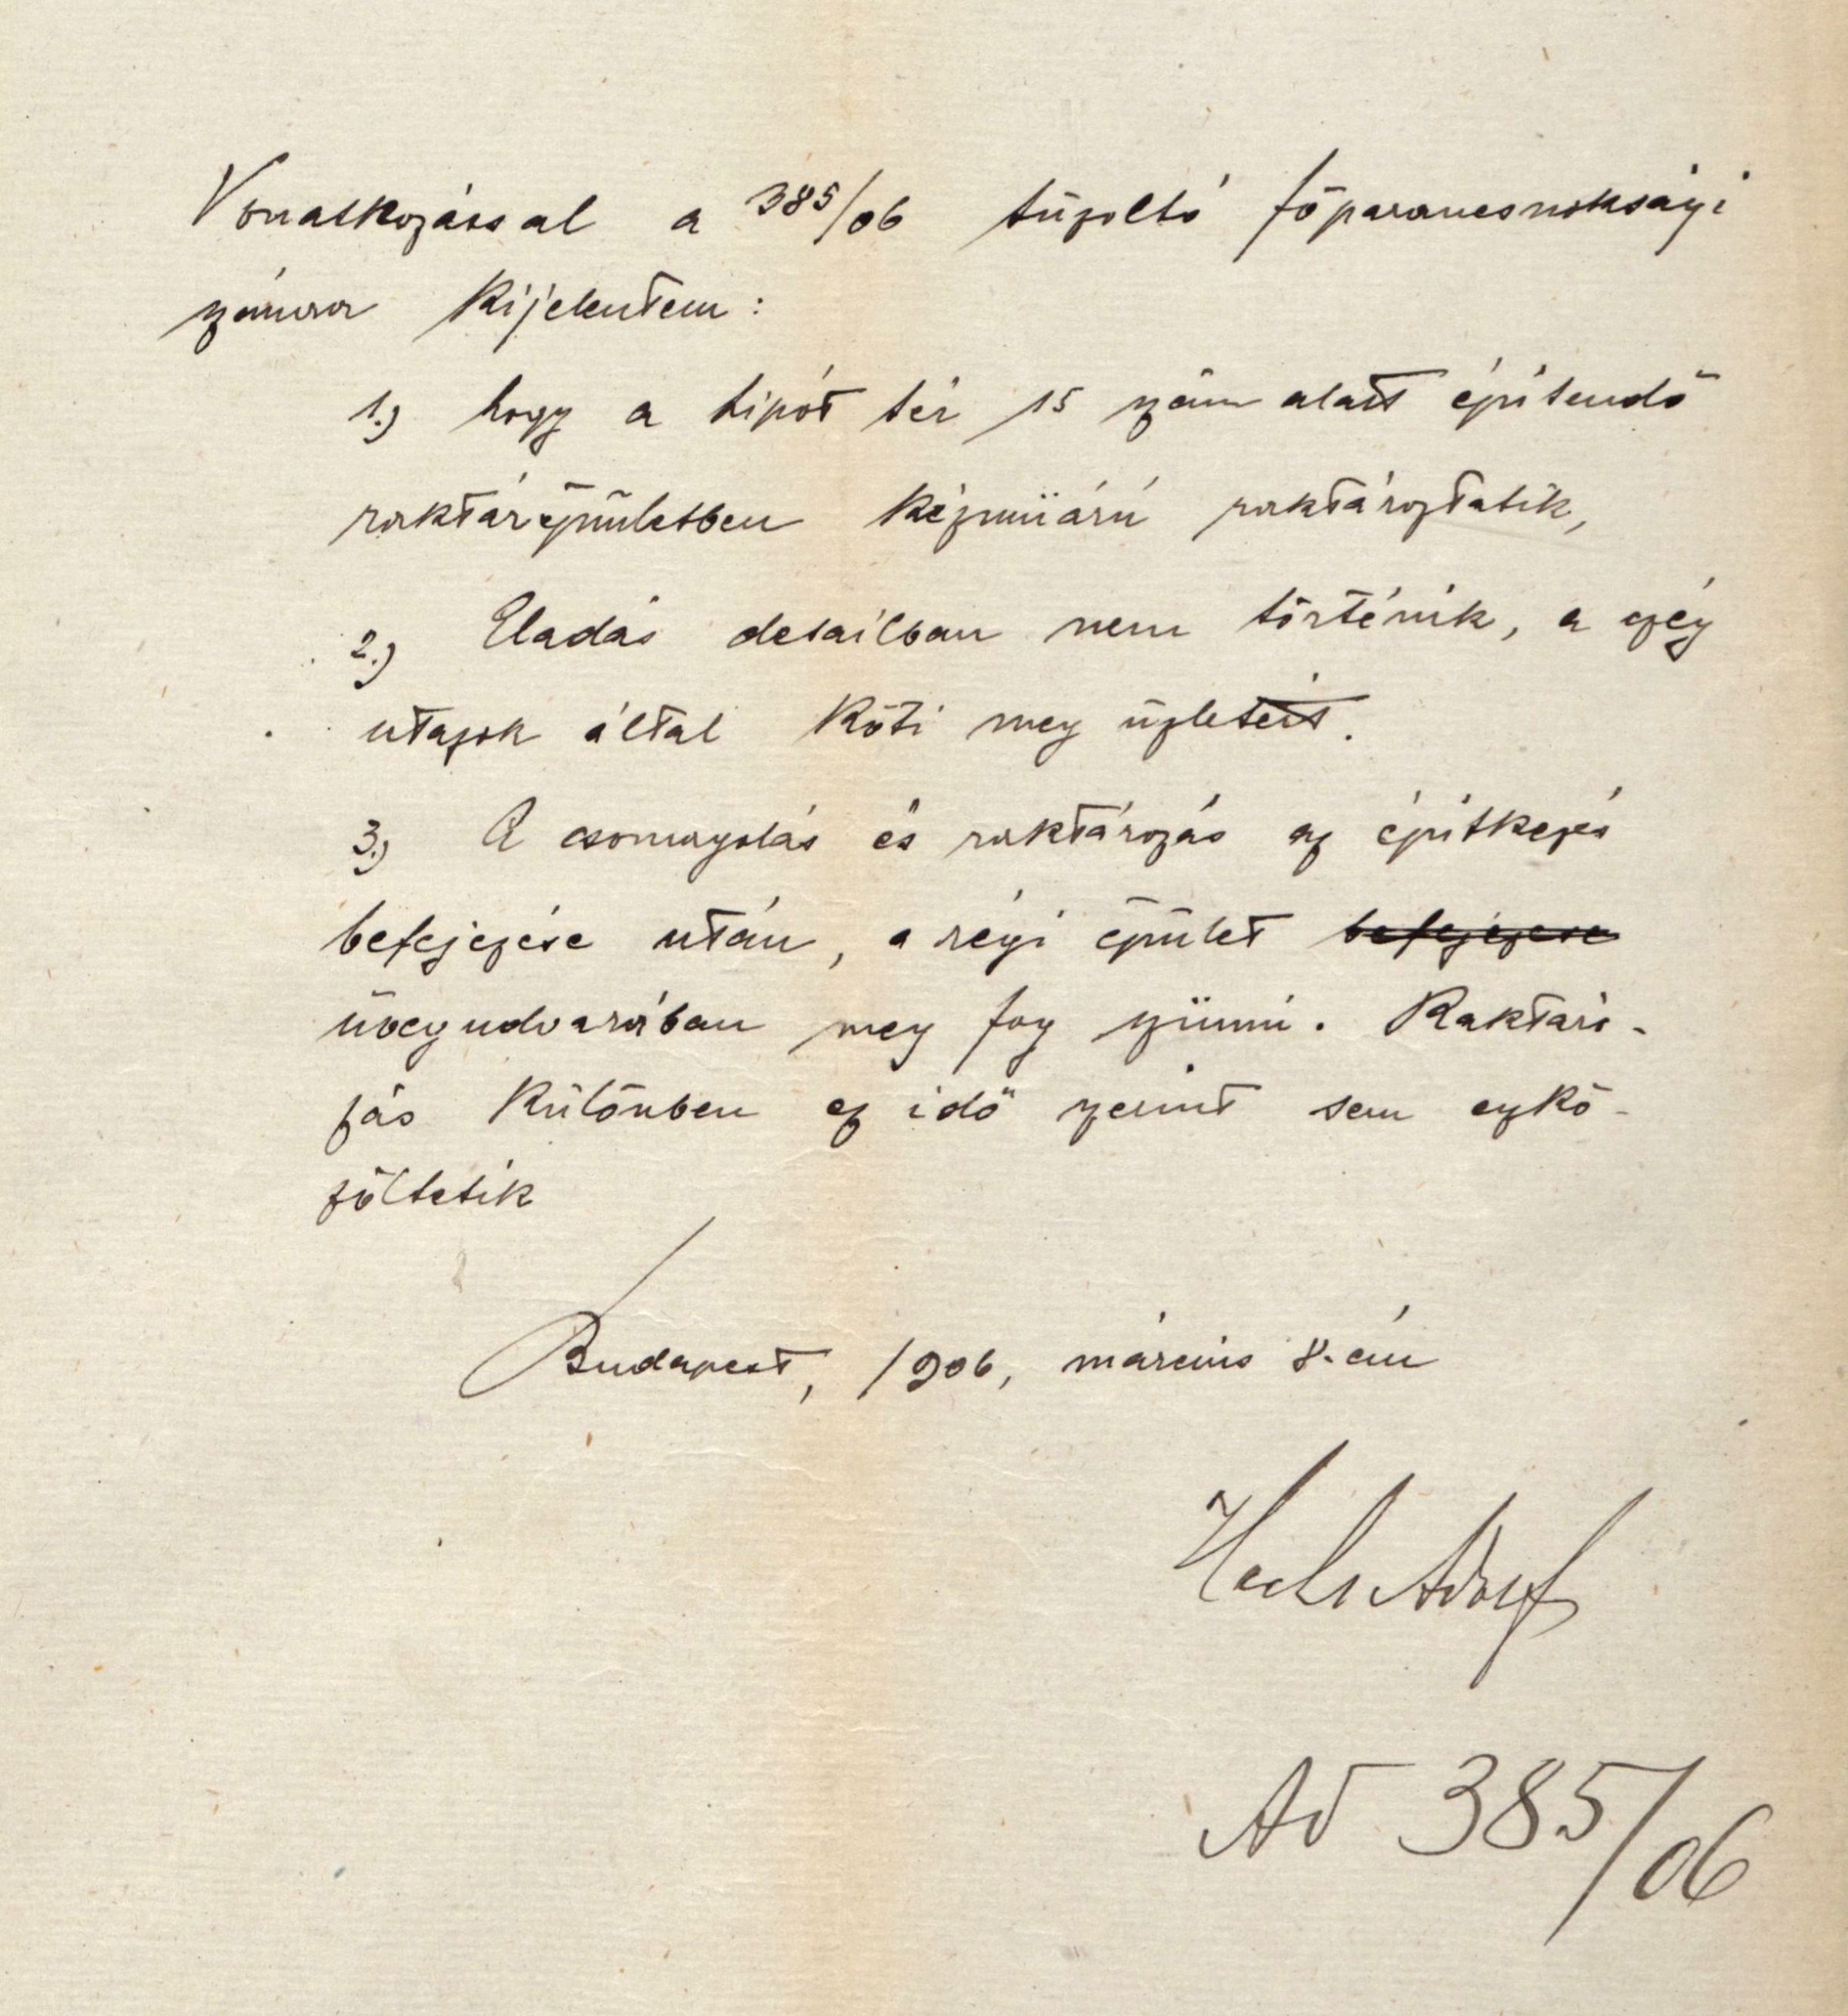 Vonatkozással a 385/06 tűzoltó főparancsnoksági
számra kijelentem:
1.) hogy a Lipót tér 15 szám alatt építendő
raktárépületben kézműárú raktároztatik,
2.) Eladás detailban nem történik, a czég
utazók által köti meg üzleteit.
3.) A csomagolás és raktározás az építkezés
befejezése után, a régi épület befejezese
üvegudvarában meg fog szünni. Raktáro-
zás különben ez idő szerint sem eszkö-
zöltetik
Budapest, 1906, március 8.-án
Adolf
Ad 385/06